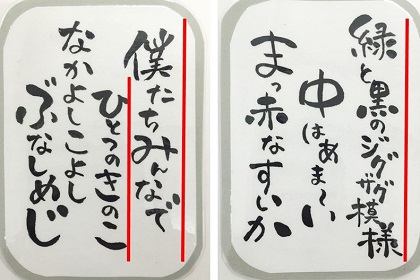 僕たちみんなで
ひとつのきのこ
なかよしこよし
ぶなしめじ
緑と黒のジグザグ模様
中はあま〜い
まっ赤なすいか